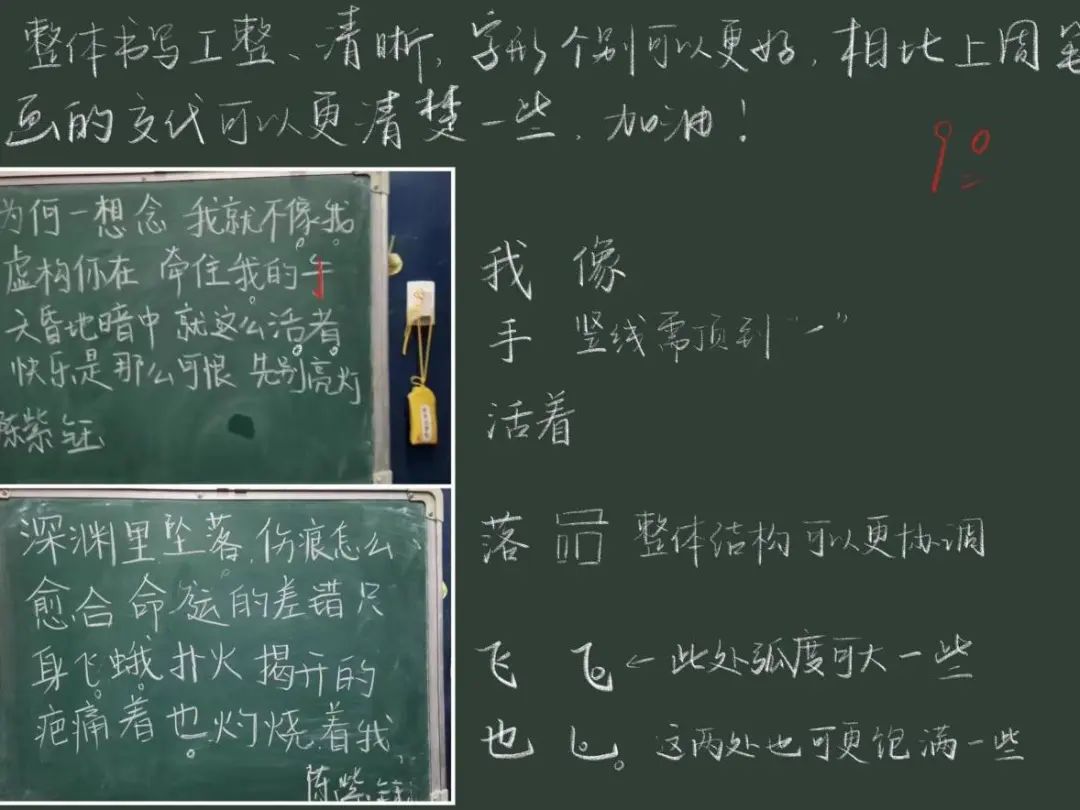 整体书写工整、清晰,字形个别可以更好,相比上周笔
画的交代可以更清楚一些,加油!
90
为何一想念 我就不像我
虚构你在 牵住我的手
天昏地暗中 就这么活着
快乐是那么可恨 先别亮灯
陈紫钰
我 像
手 竖线需顶到“㇀”
活着
深渊里坠落 伤痕怎么
愈合 命运的差错 只
身飞蛾扑火 揭开的
疤痛着 也灼烧着我
陈紫钰
落 整体结构可以更协调
飞 ← 此处弧度可大一些
也 乚 这两处也可更饱满一些